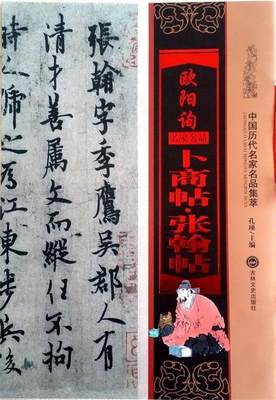 張翰字季鷹吳郡人有
清才善屬文而縱任不拘
時人號之爲江東步兵後
欧阳询
名家名品
卜商帖·张翰帖
中国历代名家名品集萃
孔瑛 主编
吉林文史出版社